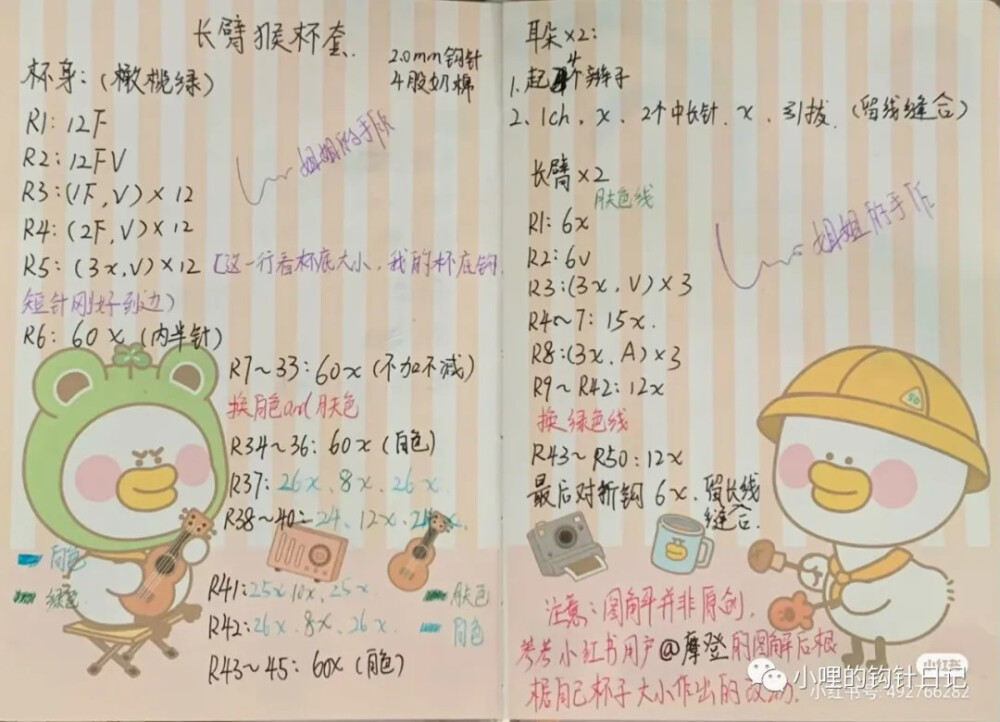 长臂猴杯套.
2.0mm钩针
4股奶棉
杯身:(橄榄绿)
R1: 12F
R2: 12FV
R3:(1F,V)×12
R4:(2F,V)×12
R5:(3x,V)×12 [这一行看杯底大小,我的杯底钩
短针刚好到边)
R6: 60x (内半针)
姐姐的手作
R7~33:60x(不加不减)
换白色and肤色
R34~36: 60x(白色)
R37: 26x、8x、26x
R38~40: 24、12x、24x.
白色
绿色
R41: 25x 10x、25x
肤色
R42: 26x、8x、26x.
白色
R43~45: 60x(白色)
耳朵×2:
1.起4个辫子
2、1ch、x、2个中长针、x、引拔.(留线缝合)
长臂×2
肤色线
R1: 6x
R2: 6v
R3:(3x,V)×3
R4~7: 15x.
R8:(3x,A)×3
R9~R42: 12x
换绿色线
R43~R50: 12x
最后对折钩6x.留长线
缝合.
姐姐的手作
50
注意:图解并非原创.
参考小红书用户@摩登的图解后根
据自己杯子大小作出的改动.
小红书
小哩的钩针日记
小红书号: 492766282